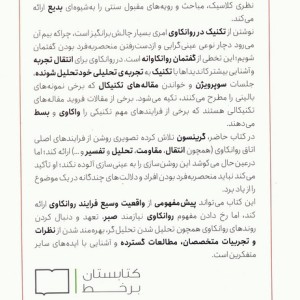 نظری کلاسیک، مباحث و رویه‌های مقبول سنتی را به‌شیوه‌ای بدیع ارائه می‌کند.
نوشتن از تکنیک در روانکاوی امری بسیار چالش‌برانگیز است، چراکه بیم آن می‌رود دچار نوعی عینی‌گرایی و ازدست‌رفتن منحصربه‌فرد بودن گفتمان شویم؛ این تخطی از گفتمان روانکاوانه است. در روانکاوی برای انتقال تجربه و آشنایی بیشتر کاندیداها با تکنیک به تجربه‌ی تحلیلی خودتحلیل‌شونده،
جلسات سوپرویژن و خواندن مقاله‌های تکنیکال که برخی نمونه‌های بالینی را مطرح می‌کنند، تکیه می‌شود. برخی از مقالات فروید مقاله‌های تکنیکالی هستند که برخی از فرایندهای مهم تکنیکی را واکاوی و بسط می‌دهند.
در کتاب حاضر، گرینسون تلاش کرده تصویری روشن از فرایندهای اصلی اتاق روانکاوی (همچون انتقال، مقاومت، تحلیل و تفسیر و...) ارائه کند؛ اما درعین‌حال می‌کوشد این روشن‌سازی را به عینی‌سازی آلوده نکند؛ او تأکید می‌کند نباید منحصربه‌فرد بودن افراد و دلالت‌های چندگانه در یک موضوع را از یاد برد.
این کتاب می‌تواند پیش‌مفهومی از واقعیت وسیع فرایند روانکاوی ارائه کند، اما رخ دادن مفهوم روانکاوی نیازمند صبر، تعهد و دنبال کردن روندهای روانکاوی همچون تحلیل شدن تحلیل‌گر، بهره‌مند شدن از نظرات و تجربیات متخصصان، مطالعات گسترده و آشنایی با ایده‌های سایر متفکرین است.
کتابستان
برخط